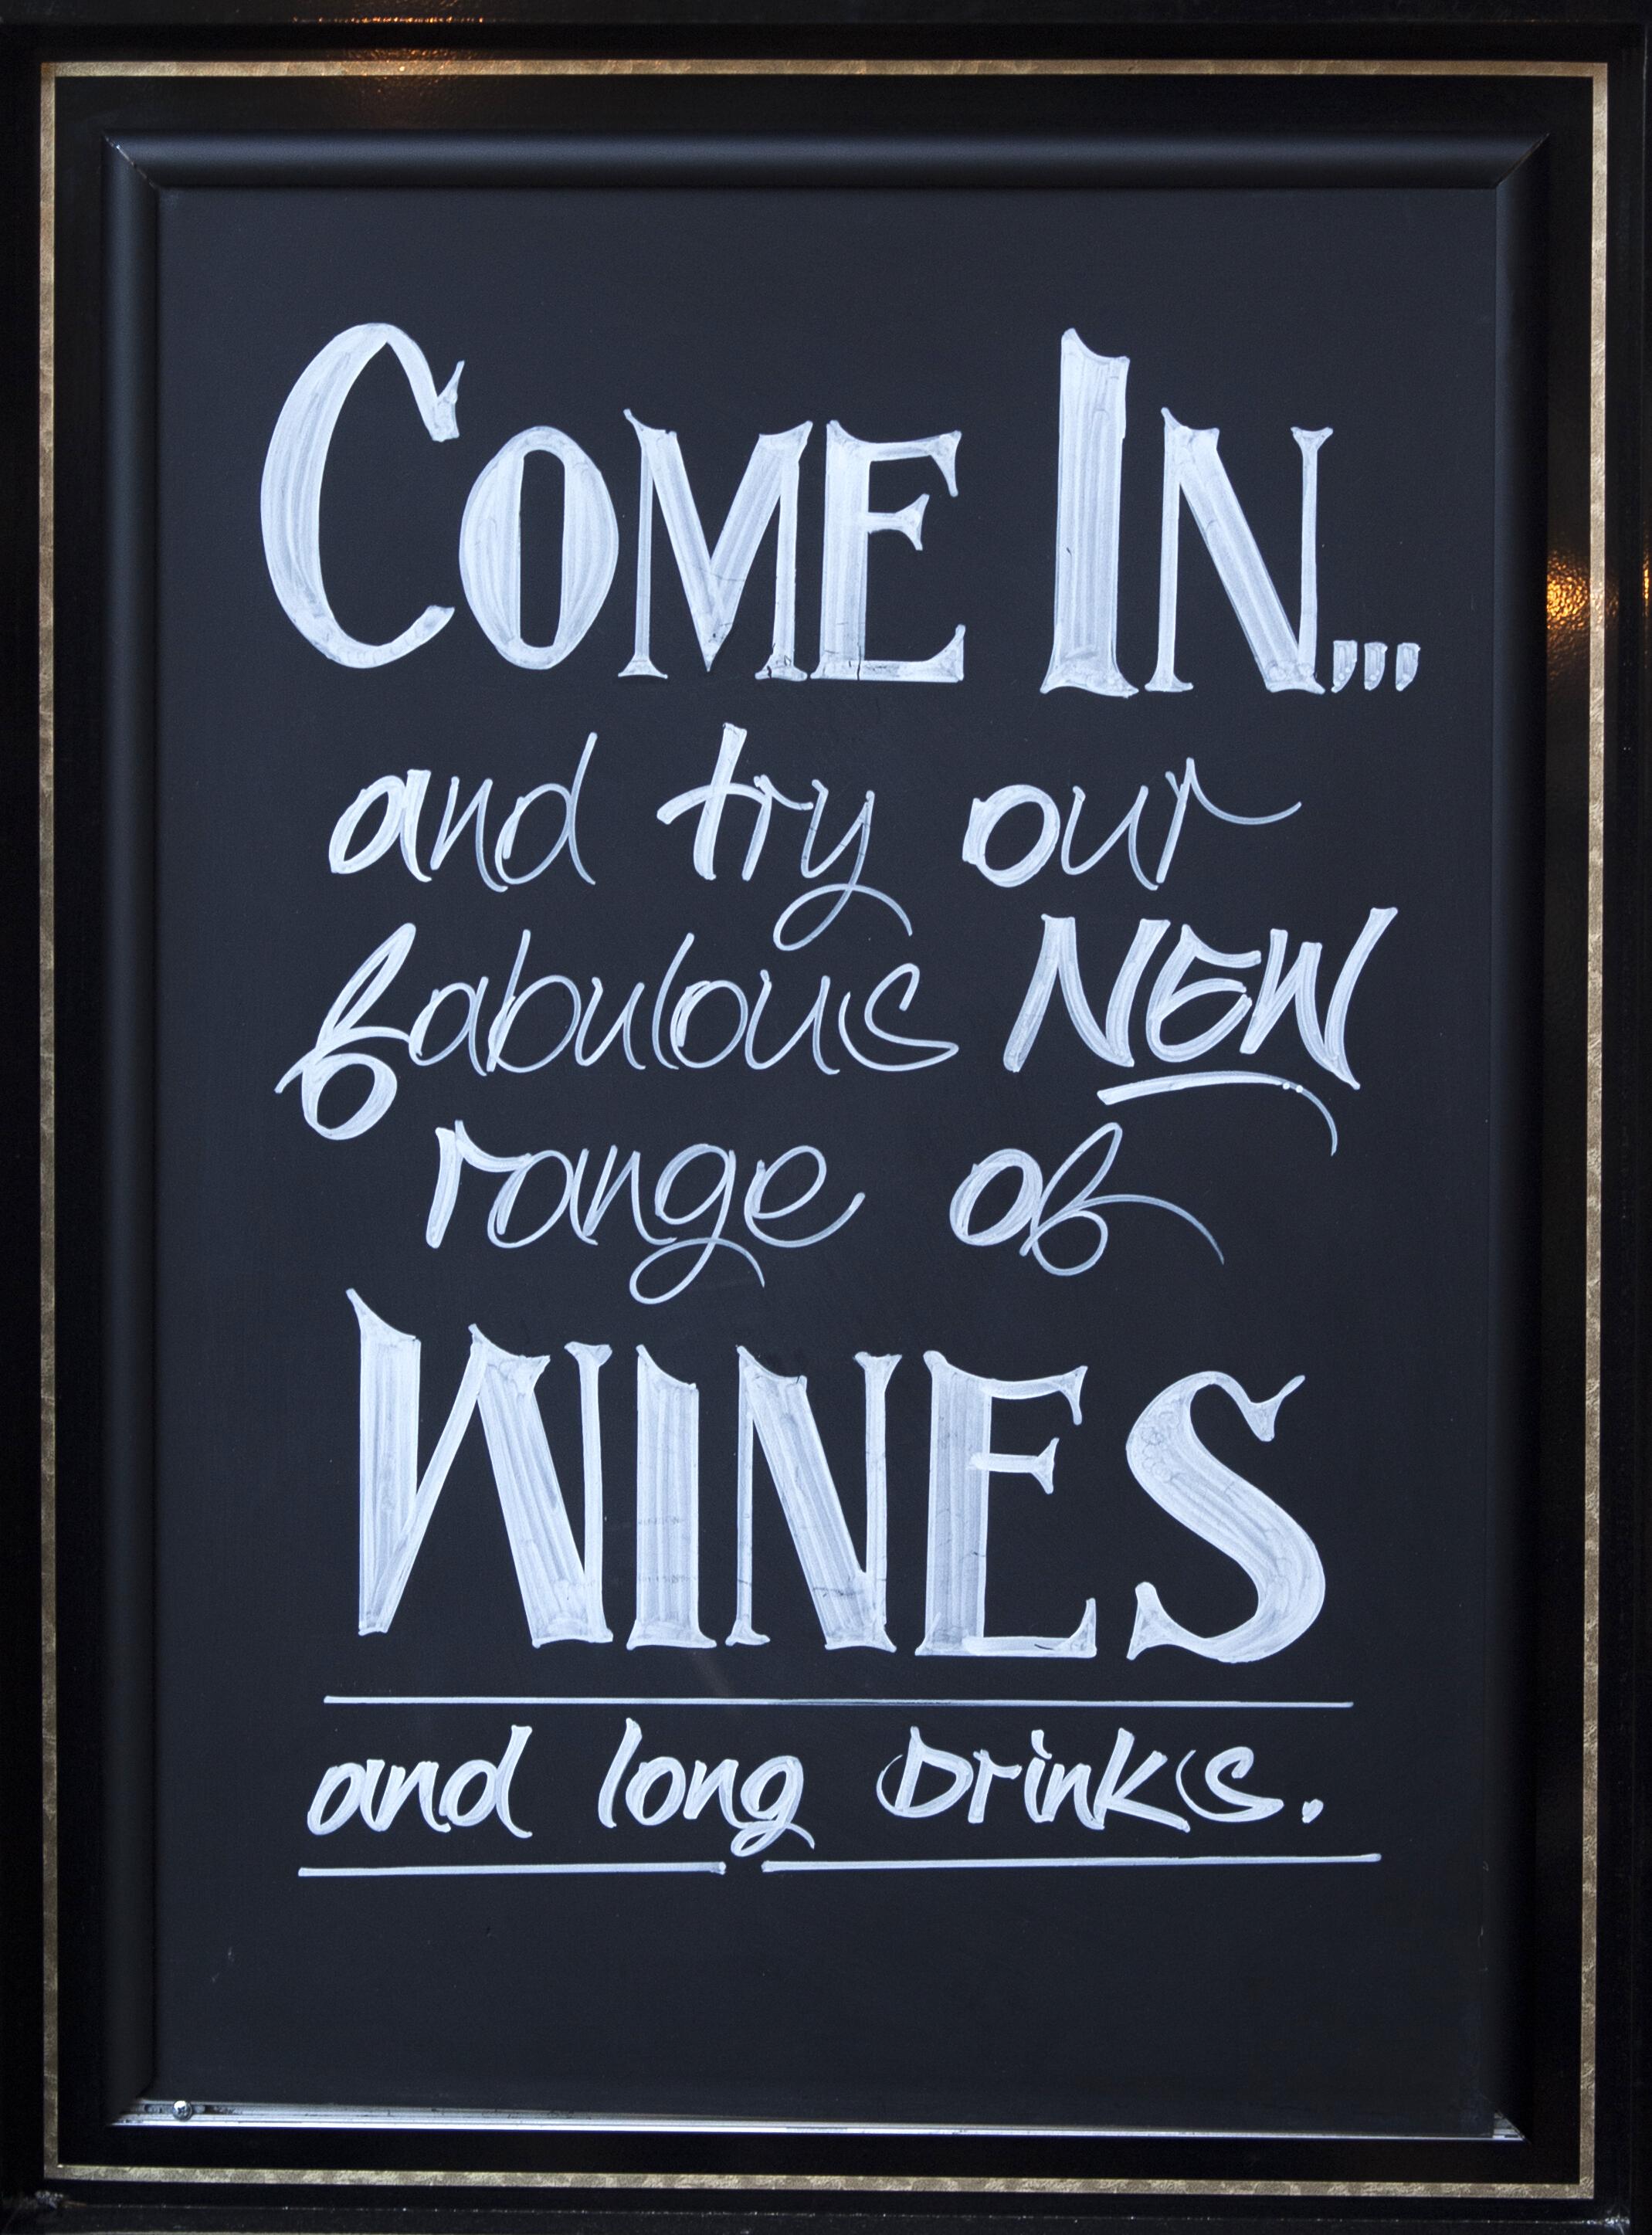 COME IN...
and try our
fabulous NEW
range of
WINES
and long Drinks.